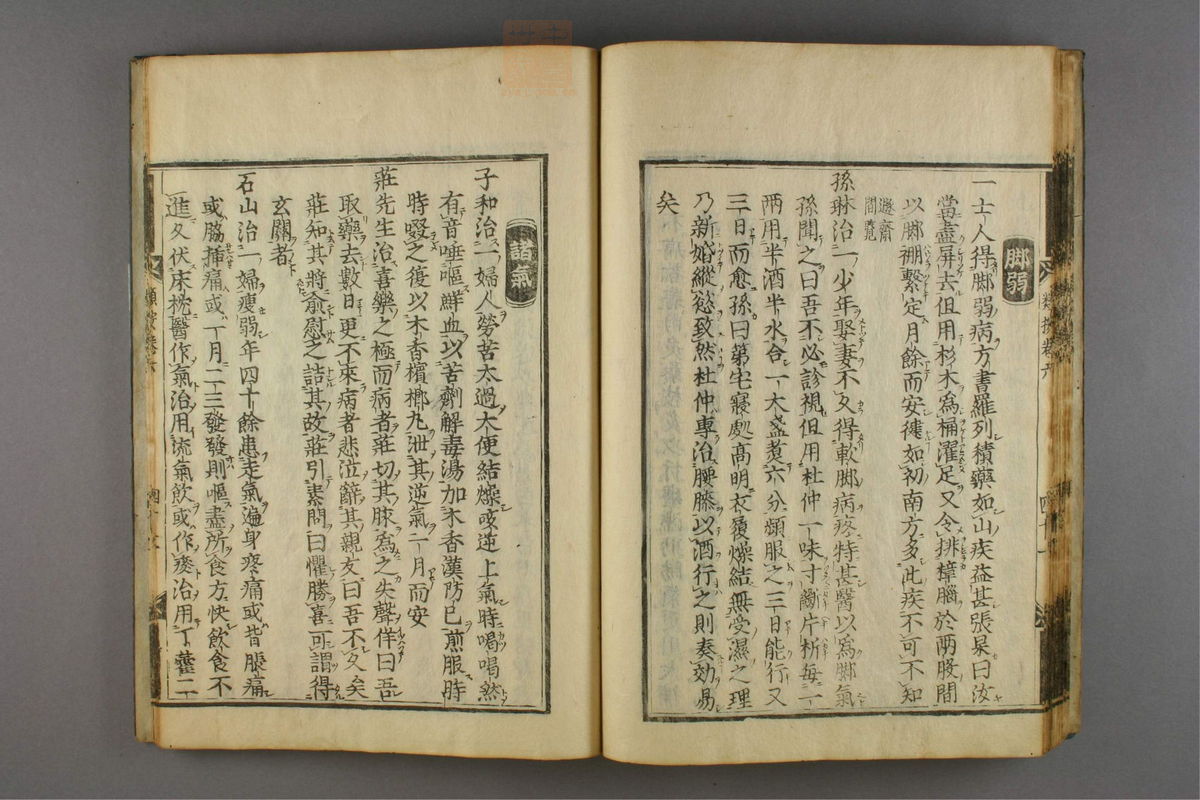 脚弱
一士人得脚弱病方書羅列積藥如山疾益甚張杲曰汝
當盡屏去但用杉木爲桶濯足又令排樟腦於兩股間
以脚棚繫定月餘而安健如初南方多此疾不可不知
遯齋
間覽
孫琳治一少年娶妻不久得軟脚病疼特甚醫以爲脚氣
孫聞之曰吾不必診視但用杜仲一味寸斷片析每一
兩用半酒半水合一大盞煮六分頻服之三日能行又
三日而愈孫曰第宅寢處高明衣履燥結無受濕之理
乃新婚縱慾致然杜仲專治腰膝以酒行之則奏効易
矣
諸氣
子和治一婦人勞苦太過大便結燥咳逆上氣時喝喝然
有音唾嘔鮮血以苦劑解毒湯加木香漢防已煎服時
時啜之復以木香檳榔丸泄其逆氣一月而安
莊先生治喜樂之極而病者莊切其脉爲之失聲佯曰吾
取藥去數日更不來病者悲泣辭其親友曰吾不久矣
莊知其將愈慰之詰其故莊引素問曰懼勝喜可謂得
玄關者
石山治一婦瘦弱年四十餘患走氣遍身疼痛或背脹痛
或脇插痛或一月二三發發則嘔盡所食方快飲食不
進久伏床枕醫作氣治用流氣飲或作痰治用丁藿二